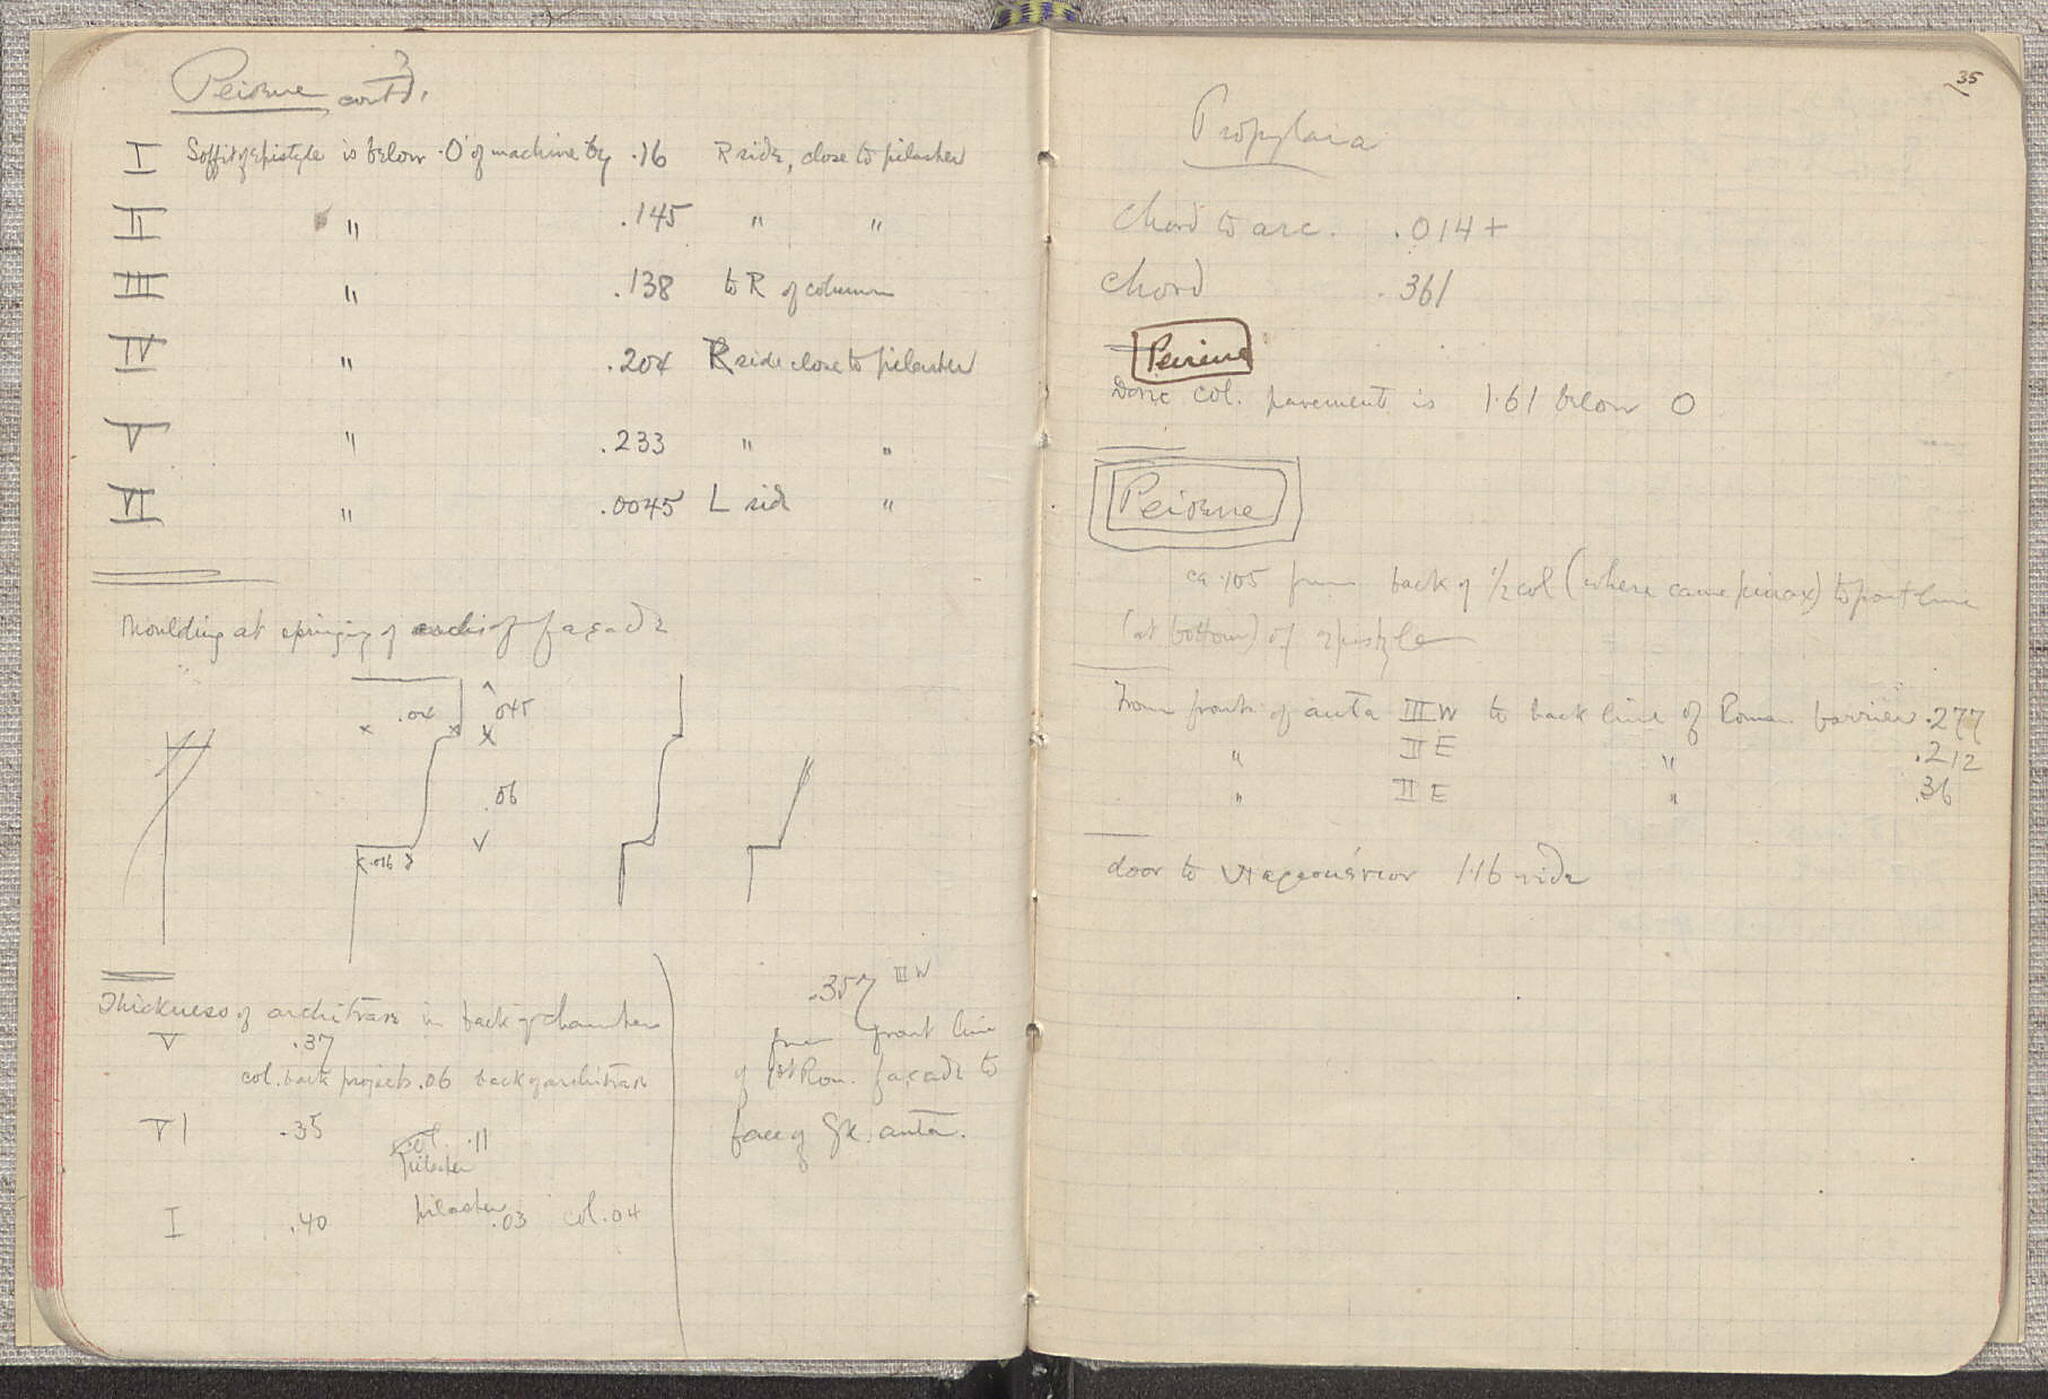 Peirene cont'd.
I Soffit of epistyle is below .0 of machine by .16 R side, close to pilaster
II " .145 " "
III " .138 to R of column
IV " .204 R side close to pilaster
V " .233 " "
VI " .0045 L side "
Moulding at springing of arches of facade
.04 .045
.06
.016
Thickness of architrave in back of chamber
V .37
col. back projects .06 back of architrave
VI .35 col. .11
pilaster
I .40 pilaster .03 col. .04
.357 III W
from front line
of 1st Rom. facade to
face of Gk. anta.
35
Propylaia
Chord to arc. .014+
Chord .361
Peirene
Doric col. pavement is 1.61 below 0
Peirene
ca .105 from back of 1/2 col (where came pinax) to front line
(at bottom) of epistyle
From front of anta III W to back line of Roman barrier .277
" II E " .212
" II E " .36
door to 1.16 wide